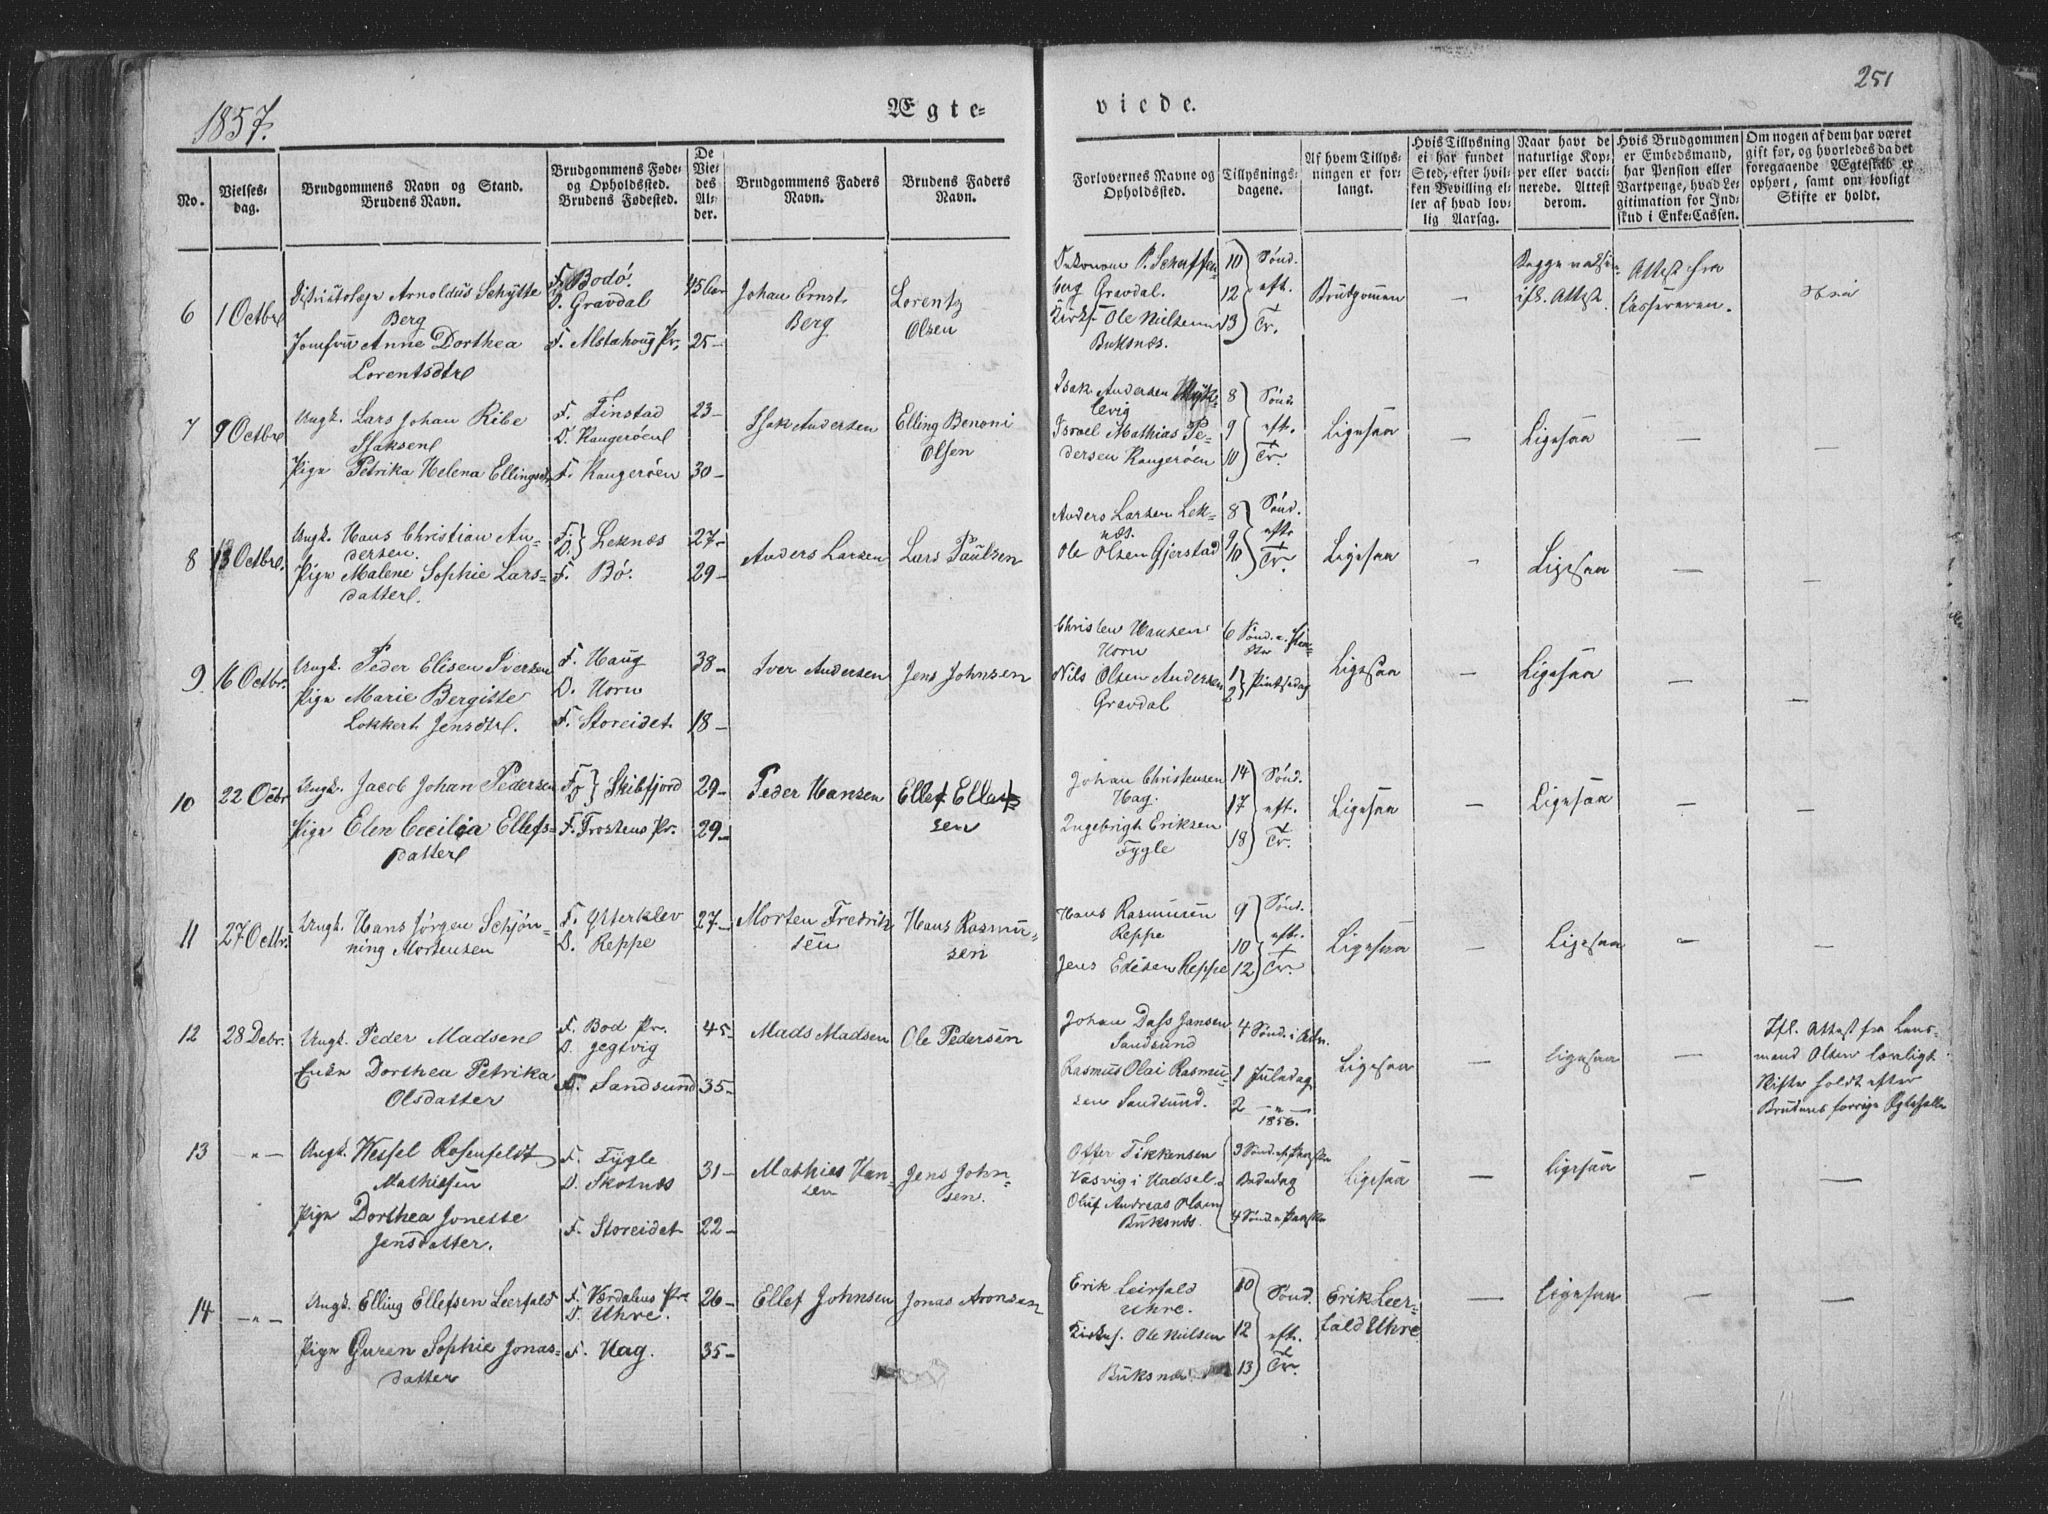 1857.
Ægte-
viede.
251
No.
Vielses-
dag.
Brudgommens Navn og Stand.
Brudens Navn.
Brudgommens Føde-
og Opholdssted.
Brudens Fødested.
De
Vie-
des
Al-
der.
Brudgommens Faders
Navn.
Brudens Faders
Navn.
Forlovernes Navne og
Opholdssted.
Tillysnings-
dagene.
Af hvem Tillys-
ningen er for-
langt.
Hvis Tillysning
ei har fundet
Sted, efter hvil-
ken Bevilling el-
ler af hvad lov-
lig Aarsag.
Naar havt de
naturlige Kop-
per eller vacci-
nerede. Attest
derom.
Hvis Brudgommen
er Embedsmand,
har Pension eller
Vartpenge, hvad Le-
gitimation for Ind-
skud i Enke-Cassen.
Om nogen af dem har været
gift før, og hvorledes da det
foregaaende Ægteskab er
ophørt, samt om lovligt
Skifte er holdt.
6
1 Octbr
Districtslæge Arnoldus Schytte
Berg
Jomfru Anne Dorthea
Lorentsdtr
F. Bodø.
O. Gravdal
F. Alstahoug Pr.
45 Aar
25-
Johan Ernst
Berg
Lorentz
Olsen
P. Scheffen-
berg Gravdal.
Kirks. Ole Nielsen
Buksnæs.
10
12
13
Sønd.
eft.
Tr.
Brudgommen
-
Attest fra
Cassereren.
7
9 Octbr
Ungk. Lars Johan Ribe
Isaksen
Pige Petrika Helena Ellingsdtr
F. Finstad
O. Kangerøen
F. Kangerøen
23-
30-
Isak Andersen
Elling Benoni
Olsen
Isak Andersen
Israel Mathias Pe-
dersen Kangerøen
8
9
10
Sønd.
eft.
Tr.
Ligesaa
-
Ligesaa
-
-
8
13 Octbr.
Ungk. Hans Christian An-
dersen.
Pige Malene Sophie Lars-
datter.
F.
O. } Leknæs
F. Bø.
27-
29-
Anders Larsen
Lars Paulsen
Anders Larsen Lek-
næs.
Ole Olsen Gjerstad
8
9
10
Sønd.
eft.
Tr.
Ligesaa
-
Ligesaa
-
-
9
16 Octbr.
Ungk. Peder Elisen Iversen
Pige Marie Bergitte
Lokkert Jensdtr.
F. Haug
O. Horn
F. Storeidet
38-
18-
Iver Andersen
Jens Johnsen
Christen Hansen
Horn
Nils Olsen Andersen
Gravdal
6 Sønd. e.
1
2 } Pintsedag
Ligesaa
-
Ligesaa
-
-
10
22 Octbr
Ungk. Jacob Johan Pedersen
Pige Elen Cecilia Ellefs-
datter
F.
O. } Skibfjord
F. Frostens Pr.
29-
29-
Peder Hansen
Ellef Ellef-
sen
Johan Christensen
Hag.
Ingebrigt Eriksen
Fygle
14
17
18
Sønd.
eft.
Tr.
Ligesaa
-
Ligesaa
-
-
11
27 Octbr.
Ungk. Hans Jørgen Schjøn-
ning Mortensen
F. Ytterklev
O. Reppe
27-
Morten Fredrik-
sen
Hans Rasmu-
sen
Hans Rasmusen
Reppe
Jens Edisen Reppe
9
10
12
Sønd.
eft.
Tr.
Ligesaa
-
Ligesaa
-
-
12
28 Debr.
Ungk. Peder Madsen
Enke Dorthea Petrika
Olsdatter
F. Bod Pr.
O. Jegtvig
F. Sandsund
45-
35-
Mads Madsen
Ole Pedersen
Johan Dass Jansen
Sandsund
Rasmus Olai Rasmu-
sen Sandsund.
4 Sønd. i Adv.
1 Juledag
2 -"-
1856.
Ligesaa
-
Ligesaa
-
Ifl. Attest fra Lens-
mand Olsen lovligt
Skifte holdt efter
Brudens forrige Ægtefælle
13
-"-
Ungk. Wessel Rosenfeldt
Mathiesen
Pige Dorthea Jonette
Jensdatter.
F. Fygle
O. Skotnæs
F. Storeidet
31-
22-
Mathies Han-
sen
Jens John-
sen.
Offer Tikkensen
Vasvig i Hadsel.
Oluf Andreas Olsen
Buksnæs.
3 Sønd. ef. Paaske
Bededag
4 Sønd. e. Paaske
Ligesaa
-
Ligesaa
-
-
14
-"-
Ungk. Elling Ellefsen Leerfald
Pige Guren Sophie Jonas-
datter
F. Værdalens Pr.
O. Uhre.
F. Hag.
26-
35-
Ellef Johnsen
Jonas Aronsen
Erik Leirfald
Uhre.
Kirks. Ole Nielsen
Buksnæs
10
12
13
Sønd.
eft.
Tr.
Erik Leer-
fald Uhre
-
Ligesaa
-
-